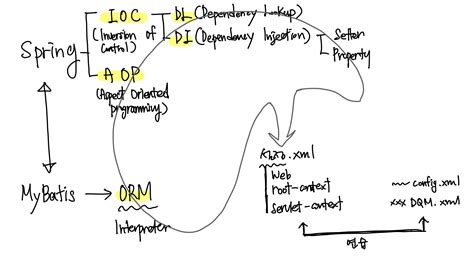 IOC
(Inversion of Control)
DL (Dependency Lookup)
DI (Dependency Injection)
Setter
Property
Spring
AOP
(Aspect Oriented
programming)
MyBatis
ORM
Interpreter
.xml
Web
root-context
Servlet-context
~ config.xml
xxx DQM.xml